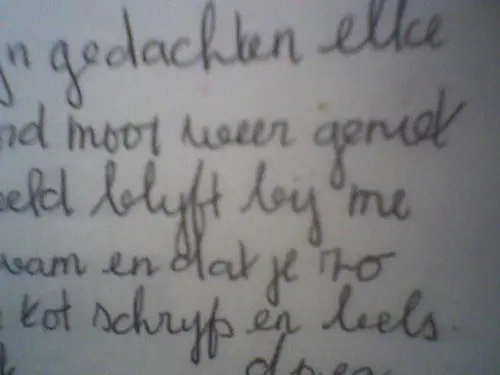 jn gedachten elke
nd moor weer geniet
eeld blyft bij me
wam en dat je zo
kot schryf en leels.